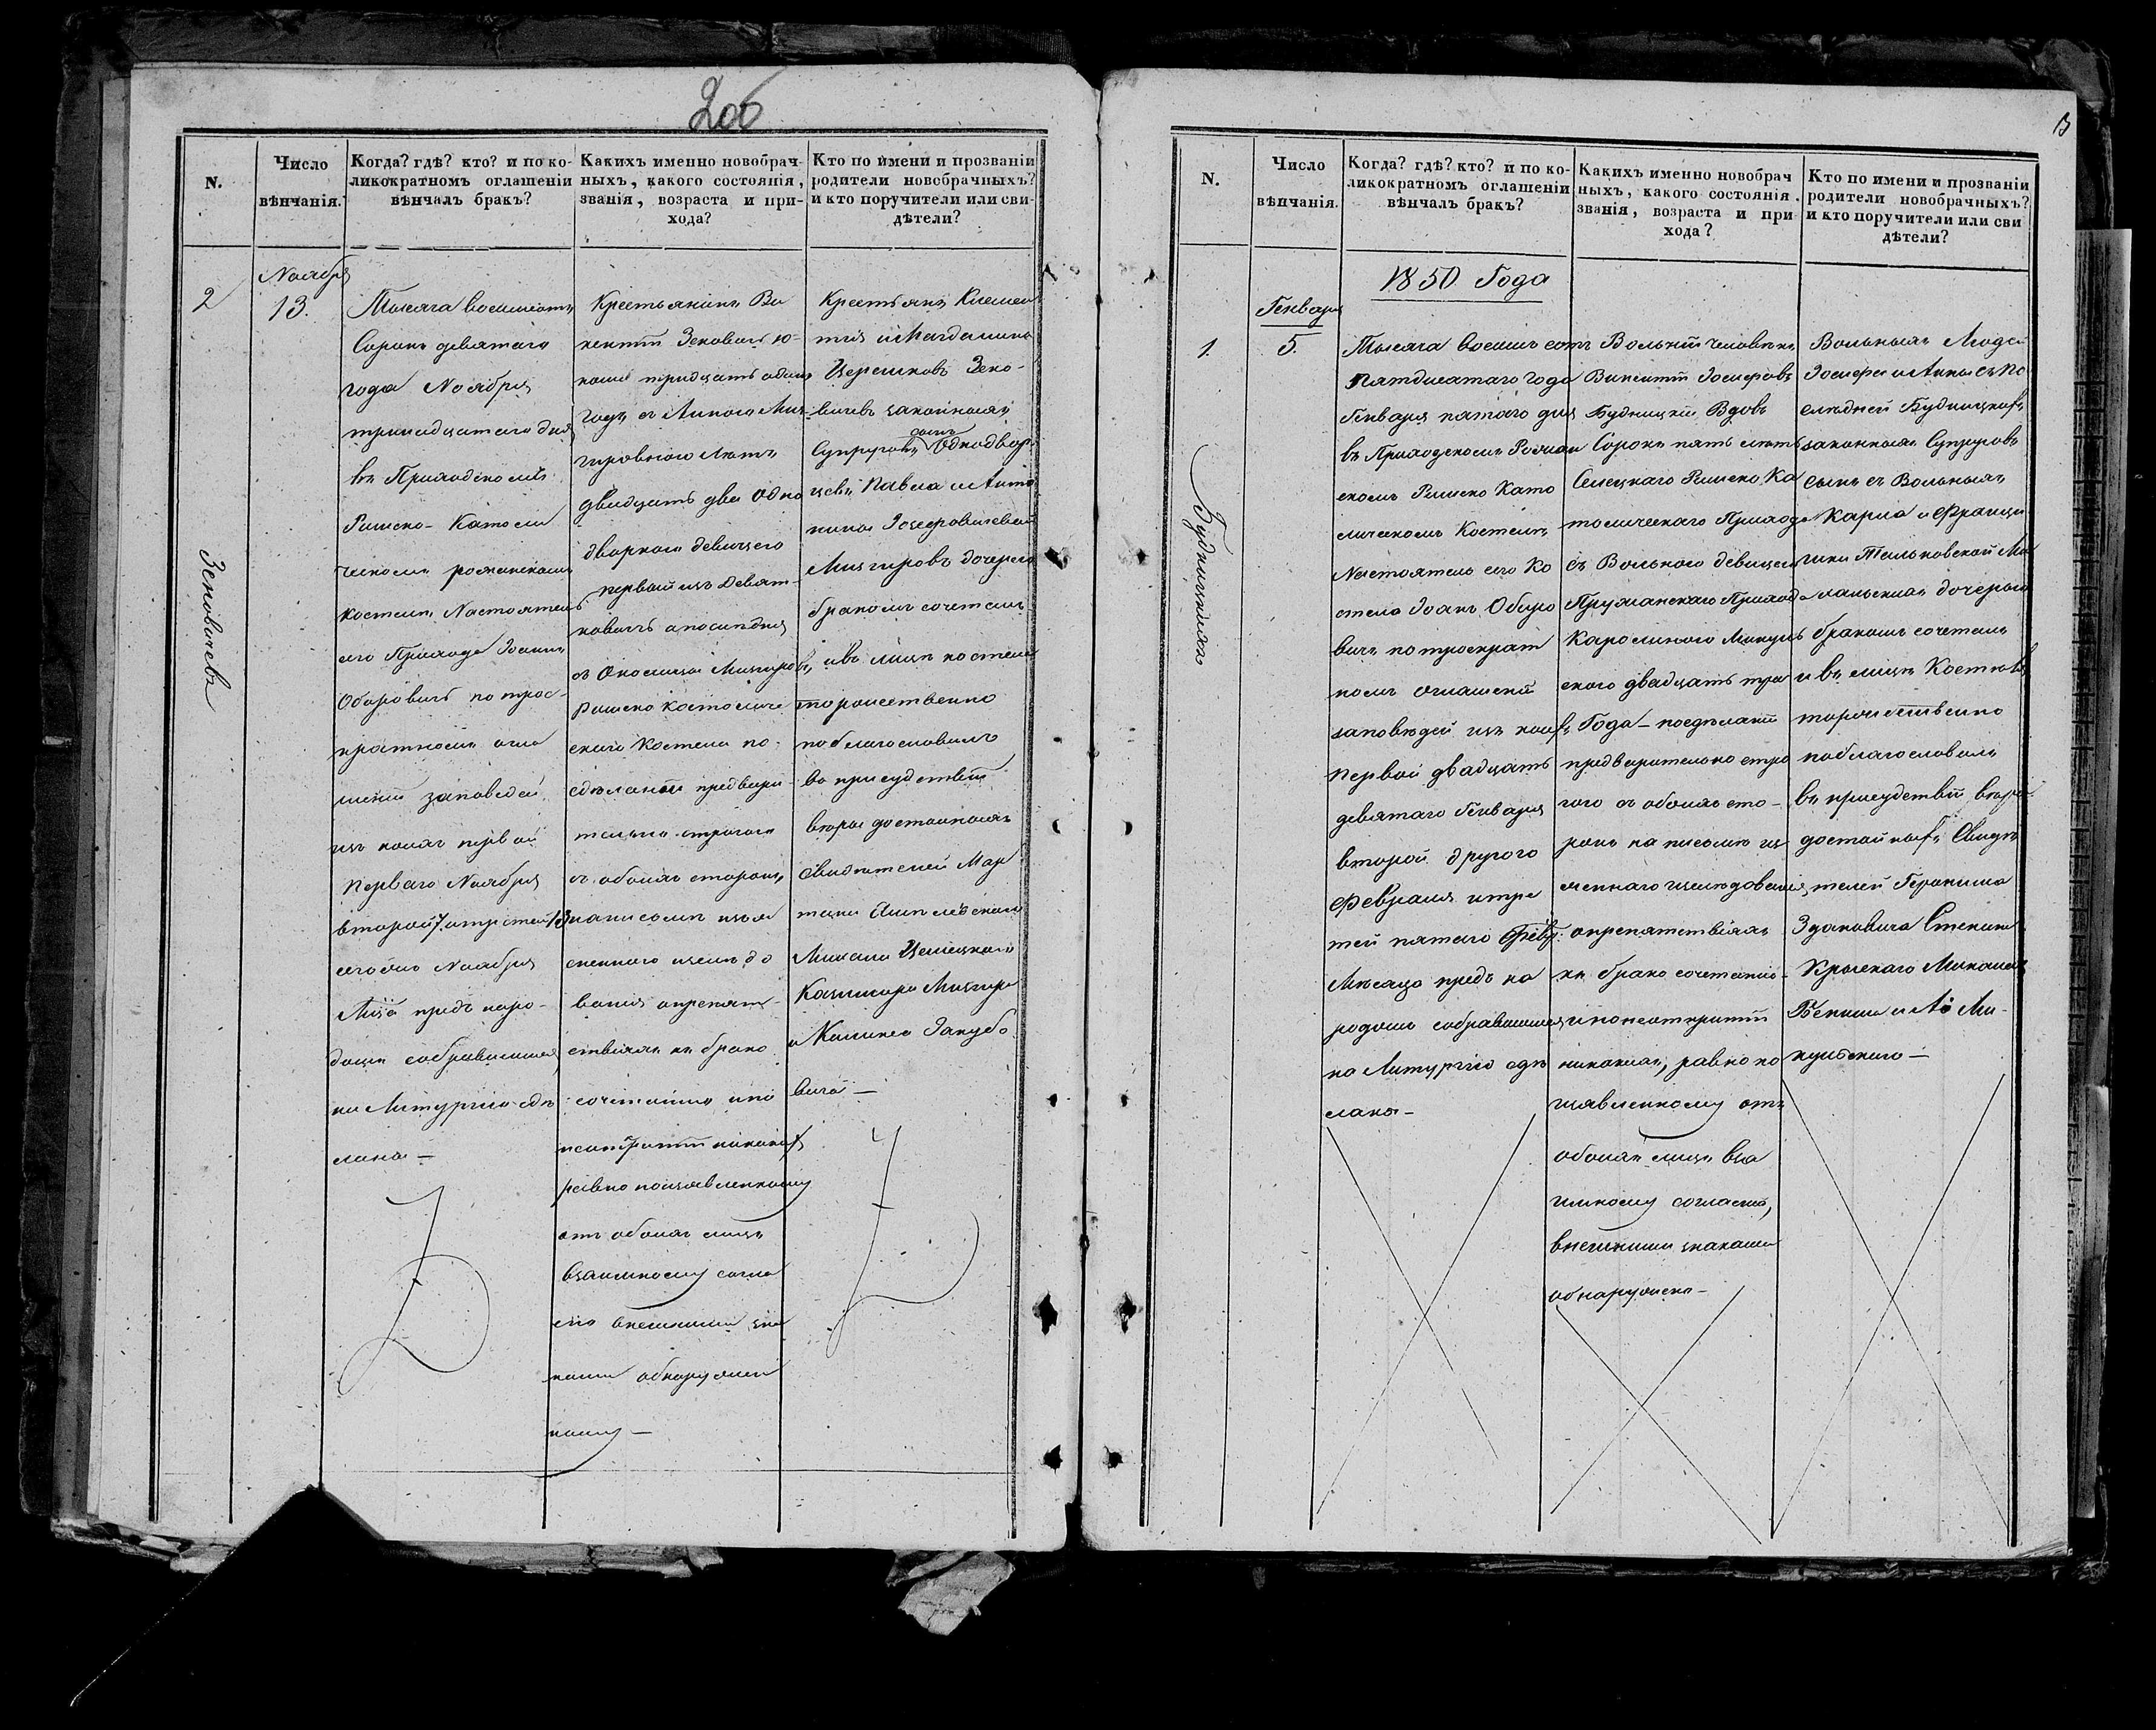 206
N.
Число
вѣнчанія.
Когда? гдѣ? кто? и по ко-
ликократномъ оглашеніи
вѣнчалъ бракъ?
Какихъ именно новобрач-
ныхъ, какого состоянія,
званія, возраста и при-
хода?
Кто по имени и прозваніи
родители новобрачныхъ?
и кто поручители или сви-
дѣтели?
2
Зеновичевъ
Ноября
13.
Тысяча восемьсотъ
Сорокъ девятаго
года Ноября
тринадцатаго дня
въ Приходскомъ
Римско-Католи
ческомъ рожанскомъ
костелѣ Настоятель
сего Прихода Іоаннъ
Оборовичъ по трое-
кратномъ огла
шеніи заповедей
изъ коихъ первой
перваго Ноября
второй 7. и третей 13
Ноября
предъ наро-
домъ собравшимся
на Литургію сдѣ
лано —
Крестьянинъ Ви
кентій Зеновичъ ю-
ноша тридцать одинъ
годъ съ
двадцать два Одно
дворкою девицею
первый изъ Девят-
ковичъ а последняя
съ Околицы Мизгировъ
Римско Католиче
скаго Костела по-
сдѣланіи предвари
тельно строгаго
съ обоихъ сторонъ
на писомѣ изъя
сненнаго изслѣдо
ванія о препят-
ствіяхъ къ брако
сочетанію и по
неоткрытіи никакихъ
равно по изъявленному
отъ обоихъ лицъ
взаимному согла
сію внешними зна
ками обнаружен
ному —
Крестьянъ Клемен
тія и Магдалины
Зено-
вичевъ законныхъ
Супруговъ сынъ Однодвор
цевъ Павла и Анто
нины Іозефовичевой
Мизгировъ дочерью
бракомъ сочеталъ
и въ лицѣ костела
торжественно
поблагословилъ
во присудствіи
вѣры достойныхъ
свидѣтелей Мар
тина
Михаила
Казимира Мизгира
и Якубо
вича —
13
N.
Число
вѣнчанія.
Когда? гдѣ? кто? и по ко-
ликократномъ оглашеніи
вѣнчалъ бракъ?
Какихъ именно новобрач
ныхъ, какого состоянія.
званія, возраста и при
хода?
Кто по имени и прозваніи
родители новобрачныхъ?
и кто поручители или сви
дѣтели?
1850 Года
1.
Будницкихъ
Генваря
5.
Тысяча восемь сотъ
пятдесатаго года
Генваря пятаго дня
въ Приходскомъ Рожан
скомъ Римско Като
лическомъ Костелѣ
Настоятель сего Ко
стела Іоанъ Оборо
вичъ по троекрат
номъ оглашеніи
заповѣдей изъ коихъ
первой двадцать
девятаго Генваря
второй другого
Февраля и тре
тей пятаго Февр:
Мѣсяца предъ на
родомъ собравшимся
на Литургію сдѣ
лано —
Вольный человѣкъ
Викентій Іозефовъ
Будницкій Вдовъ
Сорокъ пять лѣтъ
Селецкаго Римско Ка
толическаго Прихода
съ Вольною девицею
Пружанскаго Прихода
Каролиною Микуль
скою двадцать три
Года — посдѣланіи
предварительно стро
гого съ обоихъ сто-
ронъ на писомѣ изъ
ясненнаго изслѣдованія
о препятствіяхъ
къ брако сочетанію —
и по неоткрытіи
никакихъ, равно по
изъявленному отъ
обоихъ лицъ вза
имному согласію,
внешними знаками
обнаружено —
Вольныхъ Людей
Іозефа и Анны съ По
слѣдней Будницкихъ
законныхъ Супруговъ
сынъ съ Вольныхъ
Карла и Францы
шки Тельковской Ми
дочерью
бракомъ сочеталъ
и въ лицѣ Костела
торжественно
поблагословилъ
въ присудствіи вѣры
достойныхъ Свидѣ
телей Геронима
Здановича Степана
Крыскаго Михаила
Бекиша и Ми-
кульского —